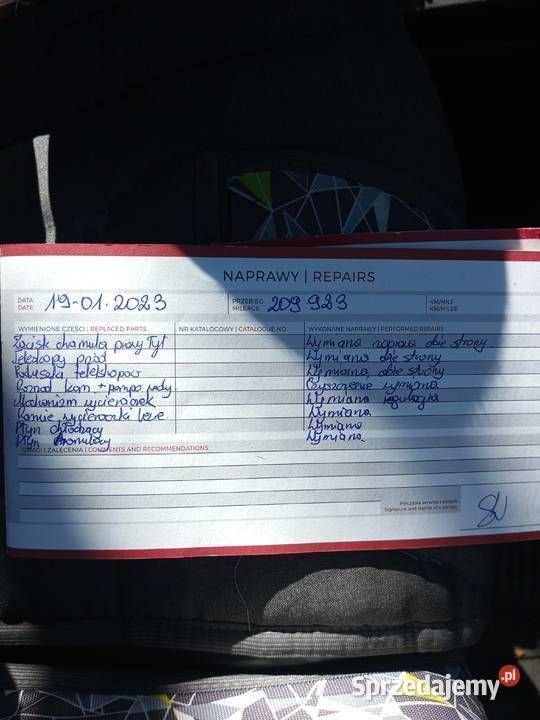 NAPRAWY | REPAIRS
DATA DATE 19-01.2023 PRZEBIEG MILEAGE 209 923 KM/MILE KM/MILES
WYMIENIONE CZĘŚCI | REPLACED PARTS NR KATALOGOWY | CATALOGUE NO. WYKONANE NAPRAWY | PERFORMED REPAIRS
Zacisk hamulca prawy Tył Wymiana naprawa obie strony
Teleskopy przód Wymiana obie strony
Poduszka teleskopów Wymiana obie strony
Rozrząd kom + pompa wody wymiana
Mechanizm wycieraczek Wymiana regulacja
Ramię wycieraczki lewe Wymiana
Płyn chłodzący Wymiana
Płyn hamulcowy Wymiana
UWAGI I ZALECENIA | COMMENTS AND RECOMMENDATIONS
Pieczątka serwisu i podpis
Signature and stamp of a garage
Sprzedajemy.pl